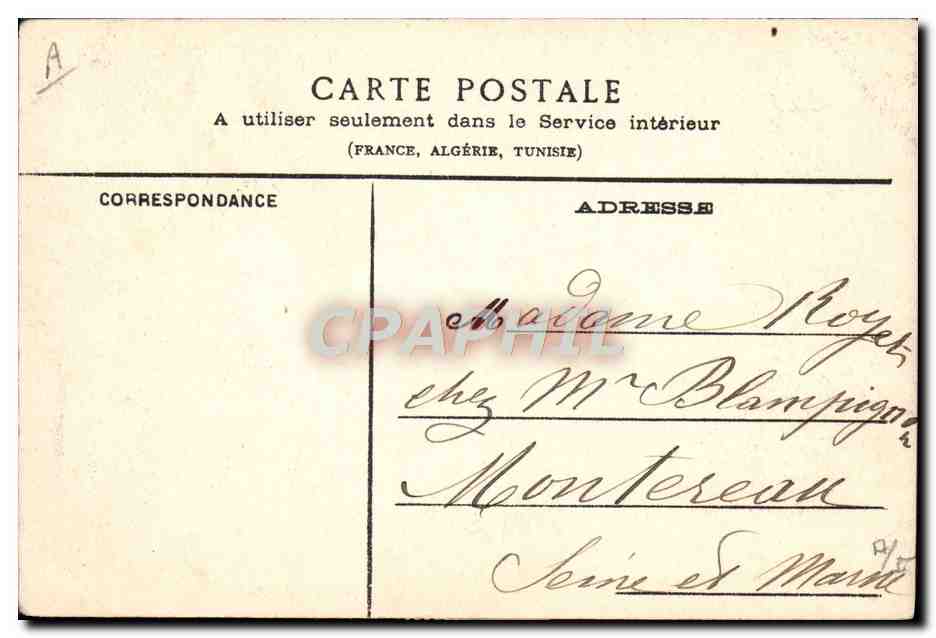 A
CARTE POSTALE
A utiliser seulement dans le Service intérieur
(FRANCE, ALGÉRIE, TUNISIE)
CORRESPONDANCE
ADRESSE
CPAPHIL
Madame Royet
chez Mr Blampignon
Montereau
Seine et Marne